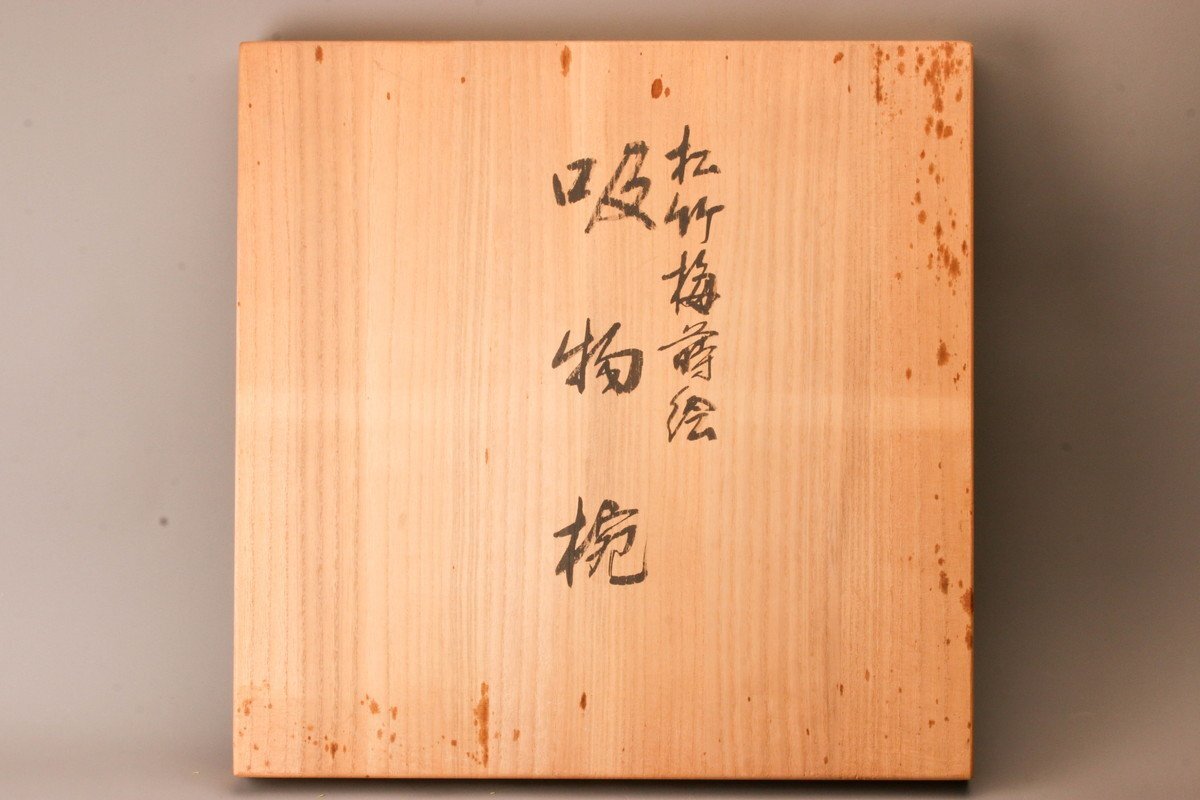 松竹梅蒔絵
吸物椀